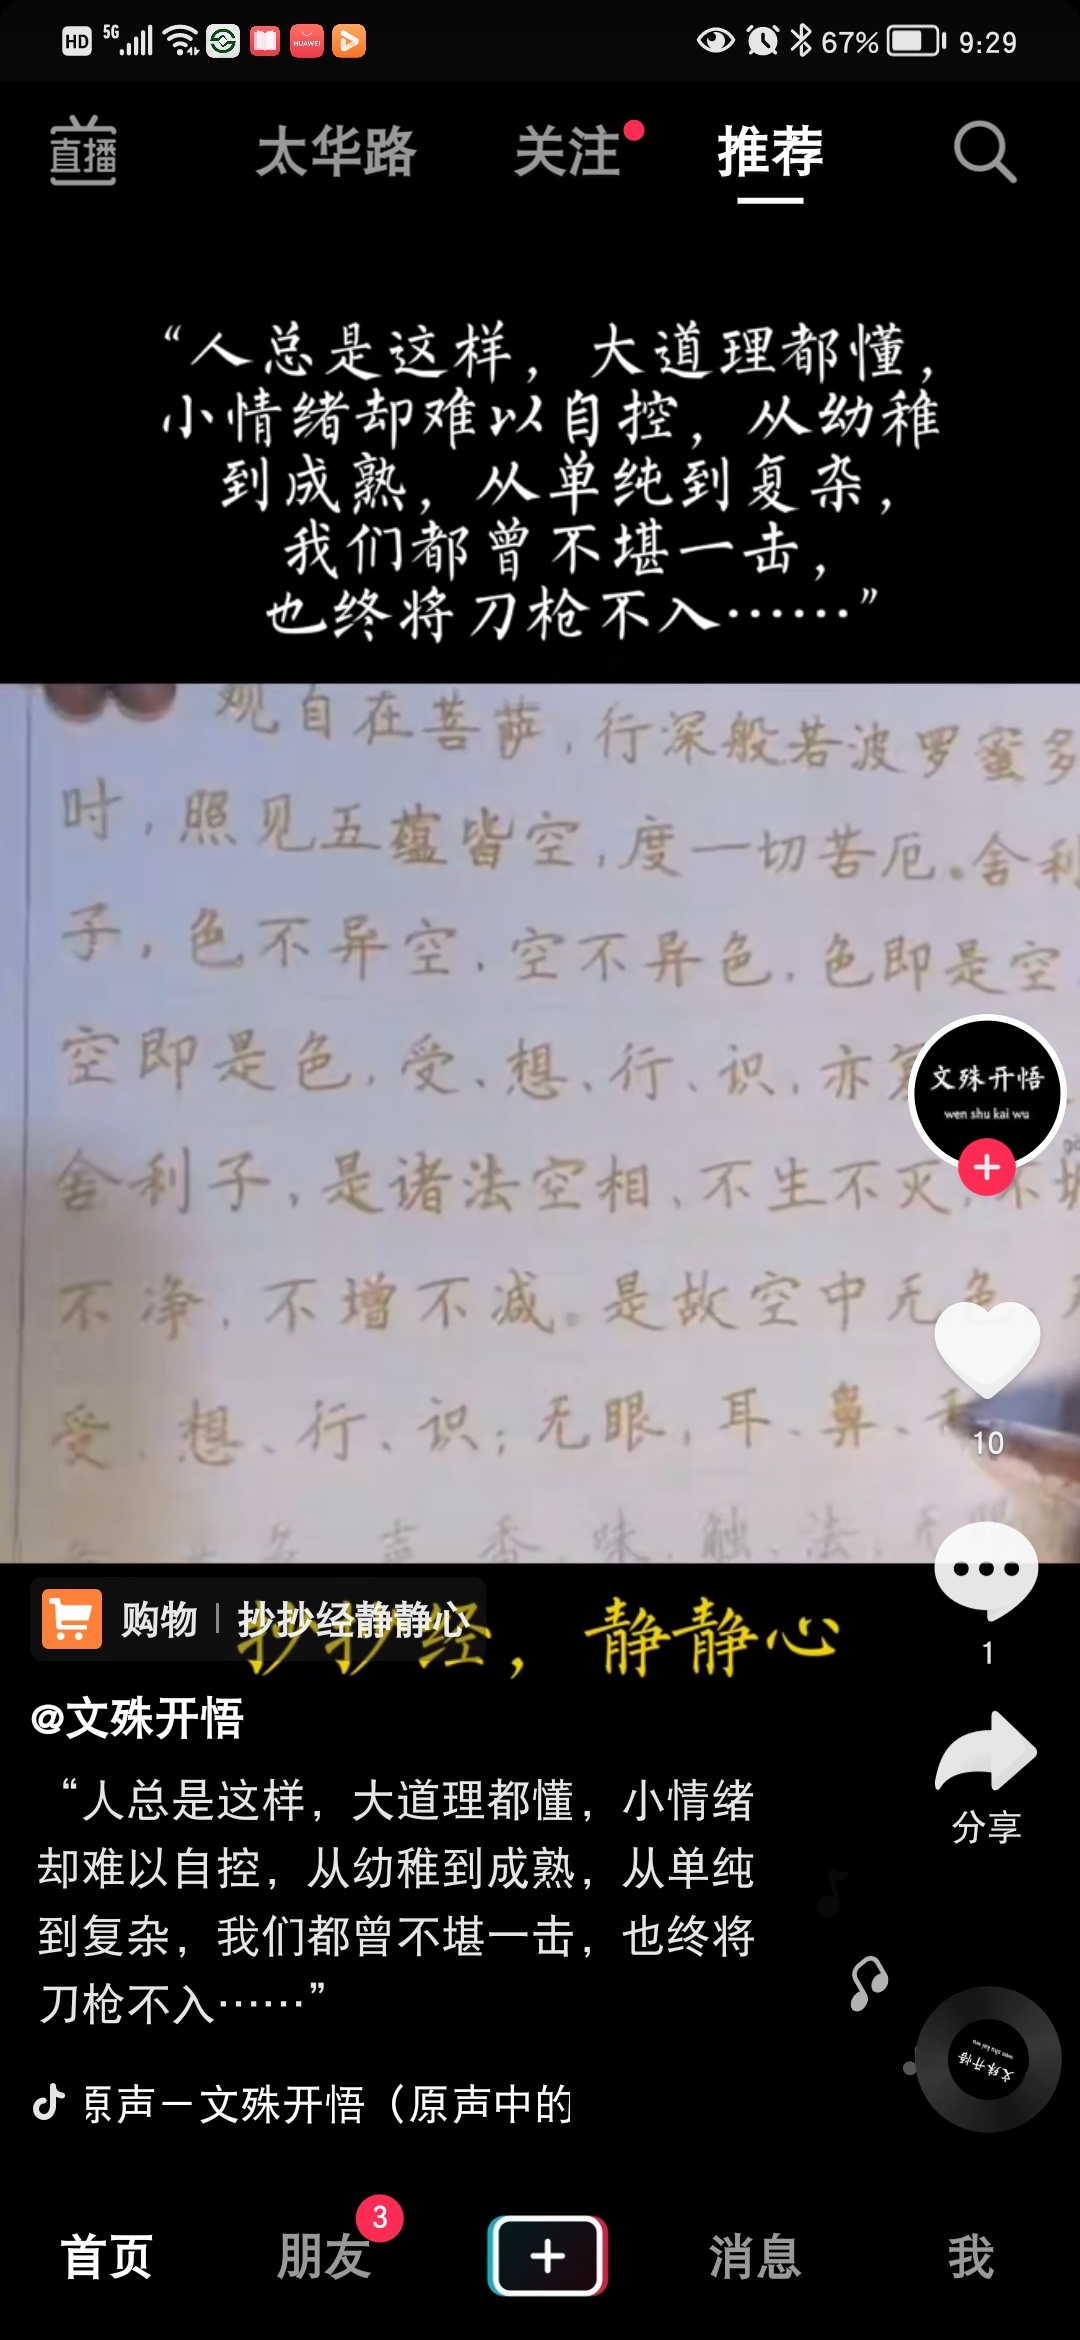 HD 5G HUAWEI 67% 9:29
直播 太华路 关注 推荐
“人总是这样，大道理都懂，
小情绪却难以自控，从幼稚
到成熟，从单纯到复杂，
我们都曾不堪一击，
也终将刀枪不入……”
观自在菩萨，行深般若波罗蜜多
时，照见五蕴皆空，度一切苦厄。舍利
子，色不异空，空不异色，色即是空
空即是色，受、想、行、识，亦
文殊开悟
wen shu kai wu
舍利子，是诸法空相，不生不灭，不
不净，不增不减。是故空中无色
受、想、行、识；无眼，耳、鼻、
10
声 香 味 触 法
1
购物 | 抄抄经静静心
抄抄经，静静心
@文殊开悟
“人总是这样，大道理都懂，小情绪
却难以自控，从幼稚到成熟，从单纯
到复杂，我们都曾不堪一击，也终将
刀枪不入……”
分享
原声－文殊开悟（原声中的
文殊开悟
wen shu kai wu
首页 朋友 3 消息 我